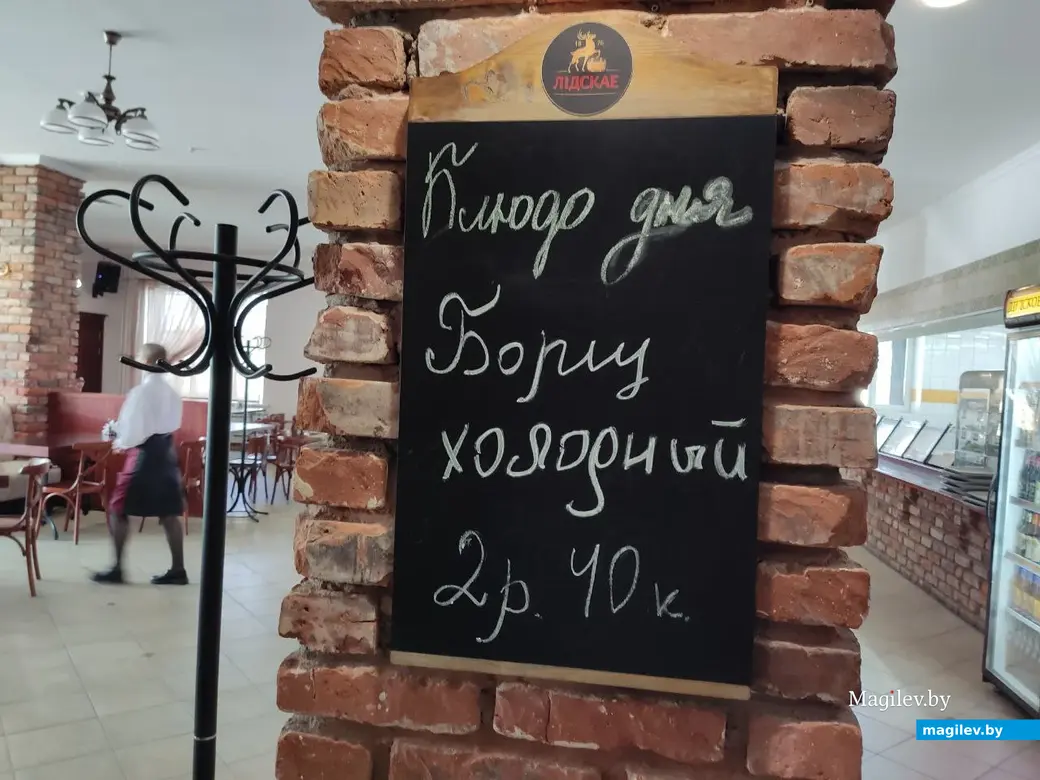 1876
ЛІДСКАЕ
Блюдо дня
Борщ
холодный
2р. 40 к.
Magilev.by
magilev.by